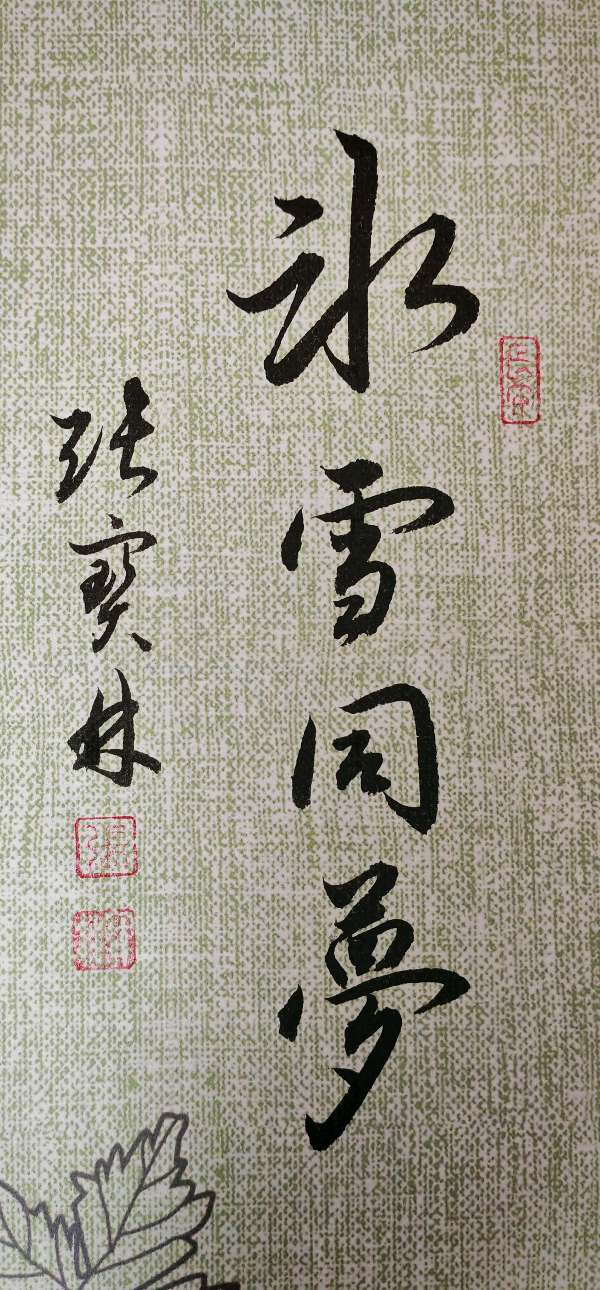 冰雪同夢
張寶林